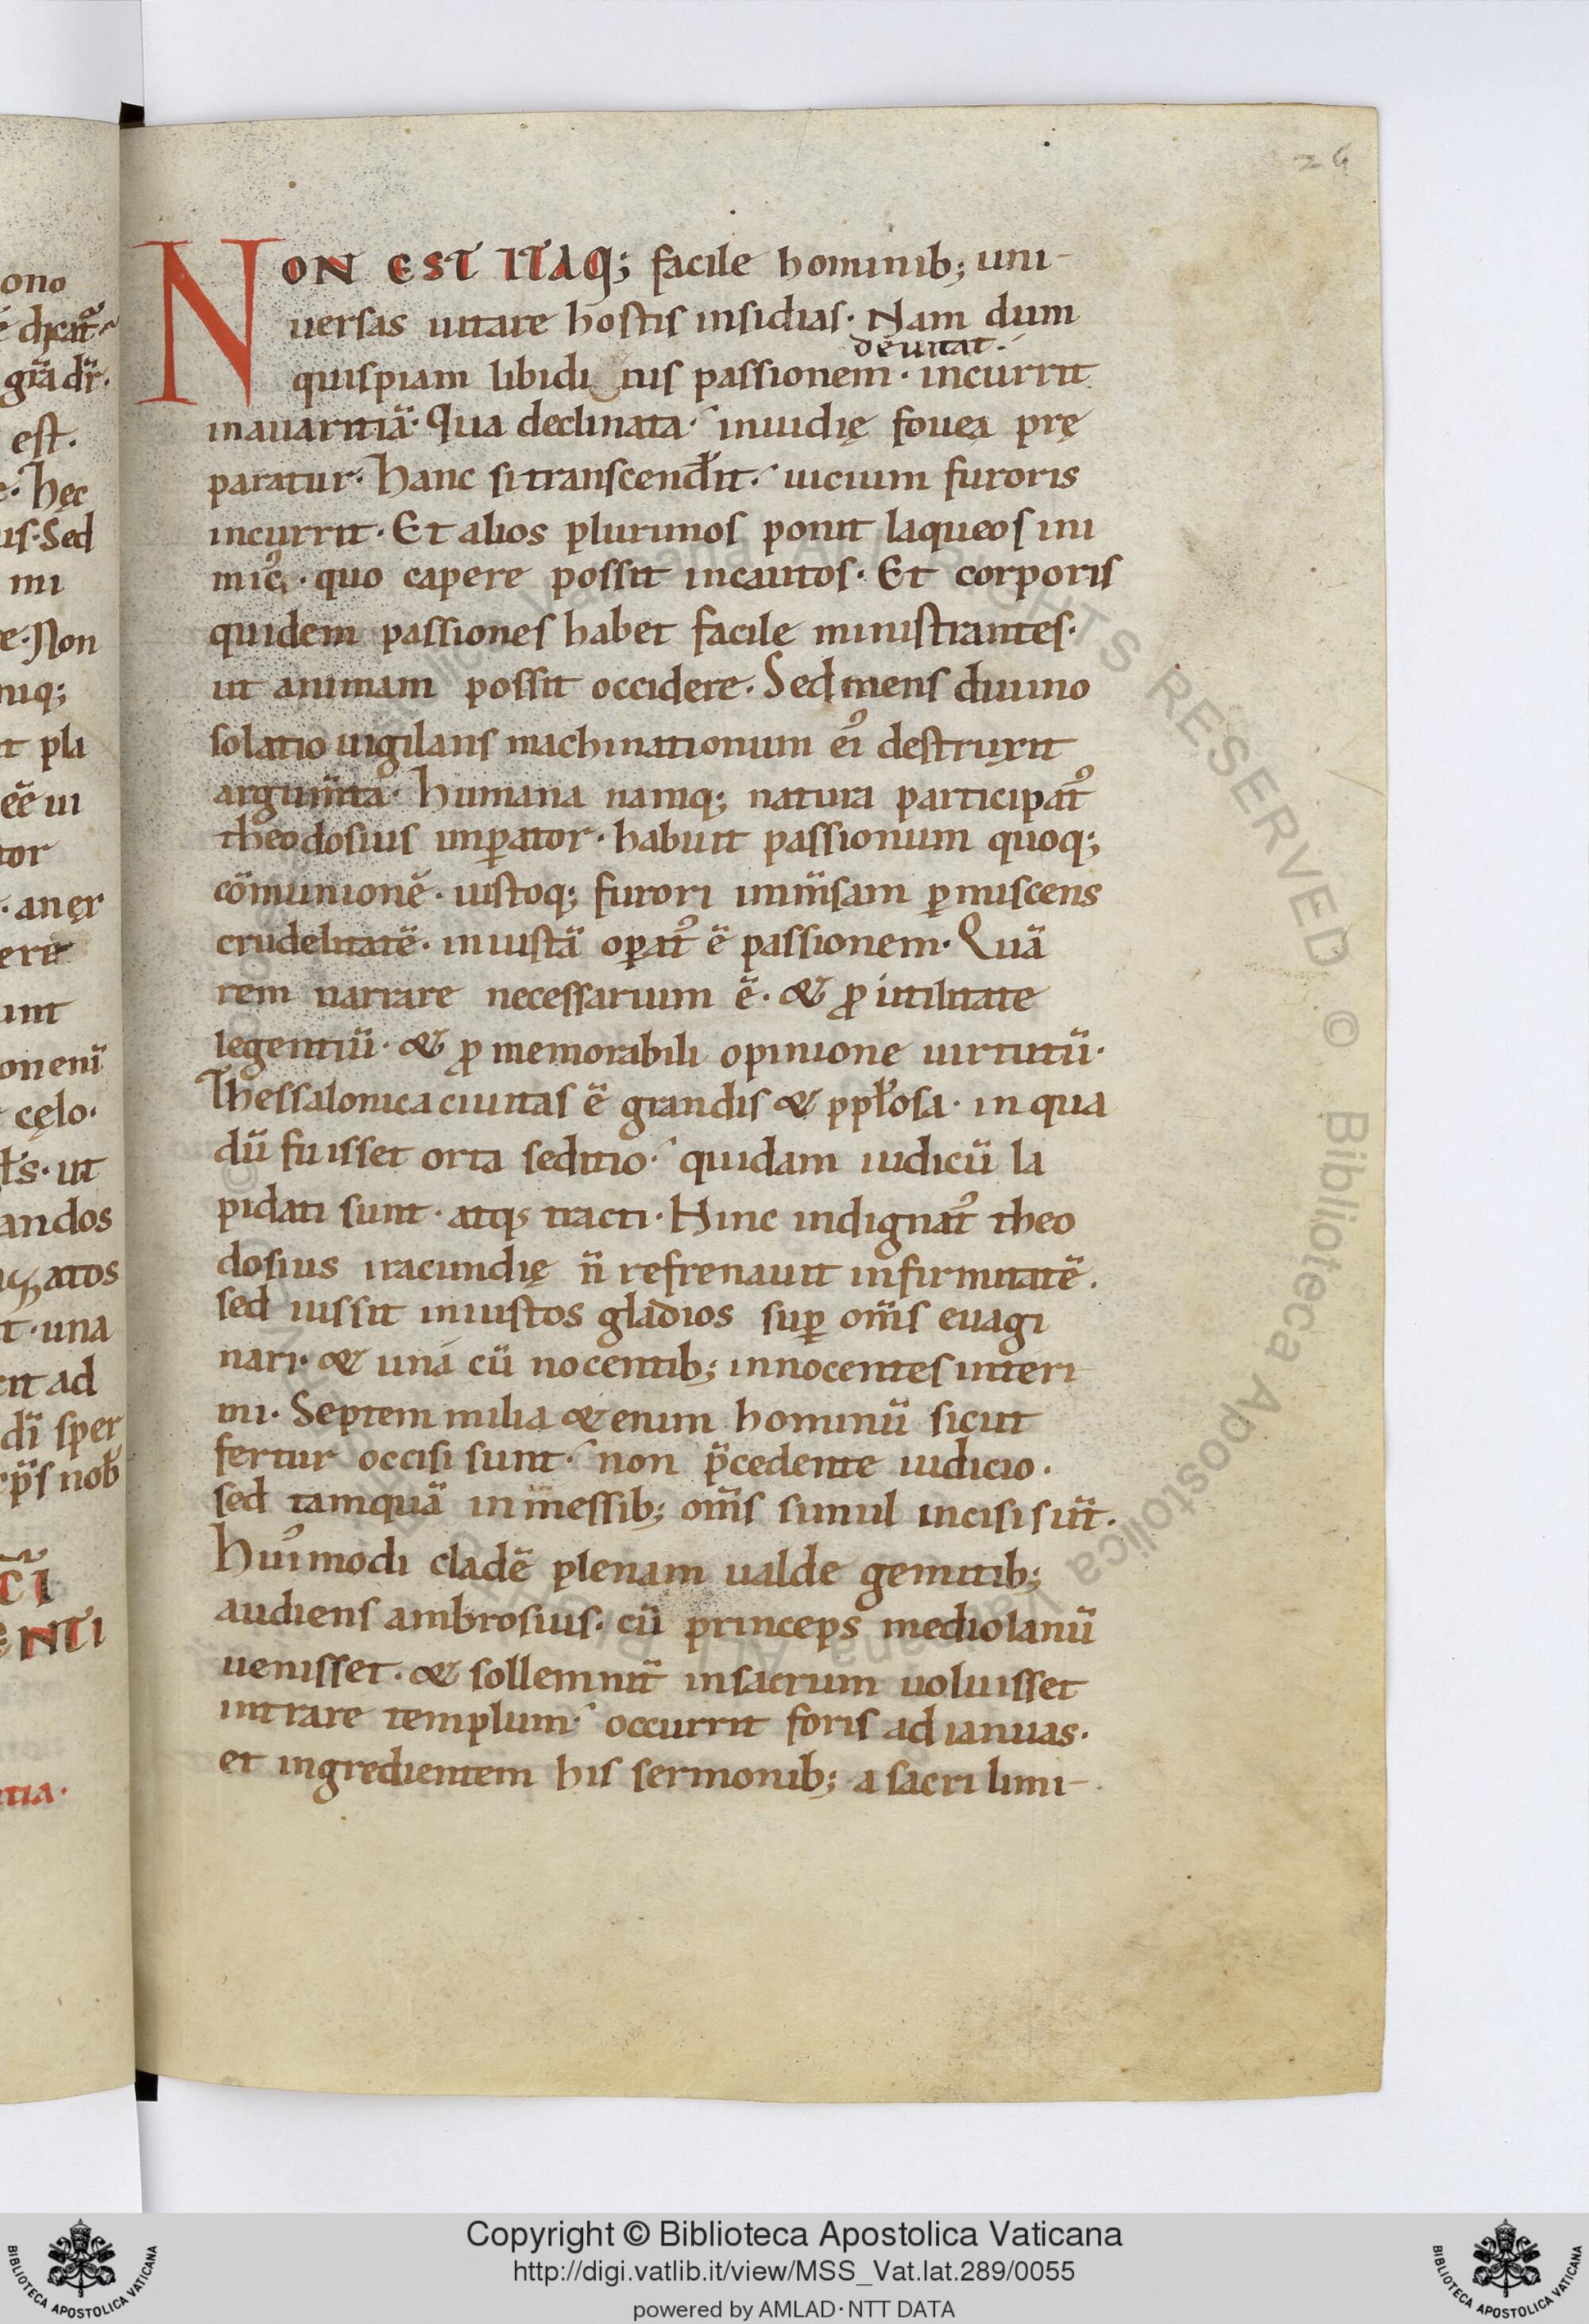 26
NON EST ITAQ; facile hominib; uni-
uersas uitare hostis insidias. Nam dum
deuitat.
quispiam libidi nis passionem. incurrit
inauaritiā. Qua declinata. inuidię fouea prę
paratur. hanc si transcend̄it. uicium furoris
incurrit. Et alios plurimos ponit laqueos ini
mic᷒. quo capere possit incautos. Et corporis
quidem passiones habet facile ministrantes.
ut animam possit occidere. Sed mens diuino
solatio uigilans machinationum ei᷒ destruxit
argum̄ta. humana namq; natura participat᷒
theodosius imꝑator. habuit passionum quoq;
cōmunionē. iustoq; furori imm̄sam ꝑmiscens
crudelitatē. iniustā oꝑat᷒ ē passionem. Quā
rem narrare necessarium ē. & ꝓ utilitate
legentiū. & ꝓ memorabili opinione uirtutū.
Thessalonica ciuitas ē grandis & ppłosa. in qua
dū fuisset orta seditio. quidam iudicū la
pidati sunt. atq; tracti. Hinc indignat᷒ theo
dosius iracundię n̄ refrenauit infirmitatē.
sed iussit iniustos gladios suꝑ om̄s euagi
nari. & una cū nocentib; innocentes interi
mi. Septem milia & enim hominū sicut
fertur occisi sunt. non p̄cedente iudicio.
sed tamquā in messib; om̄s simul incisi sūt.
hui᷒modi cladē plenam ualde gemitib;
audiens ambrosius. cū princeps mediolanū
uenisset. & sollemnit̄ in sacrum uoluisset
intrare templum. occurrit foris ad ianuas.
et ingredientem his sermonib; a sacri limi-
ono
est.
hęc
us. Sed
mi
e. Non
niq;
it pli
eē ui
tor
. aner
unt
cęlo.
ut
andos
t. una
it ad
CI
ENTI
ntia.
Copyright © Biblioteca Apostolica Vaticana
http://digi.vatlib.it/view/MSS_Vat.lat.289/0055
powered by AMLAD·NTT DATA
BIBLIOTECA APOSTOLICA VATICANA
BIBLIOTECA APOSTOLICA VATICANA